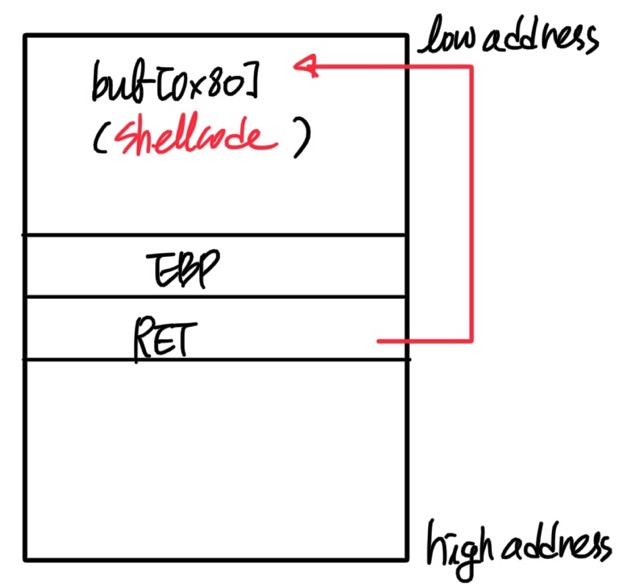 low address
buf[0x80]
(shellcode)
EBP
RET
high address